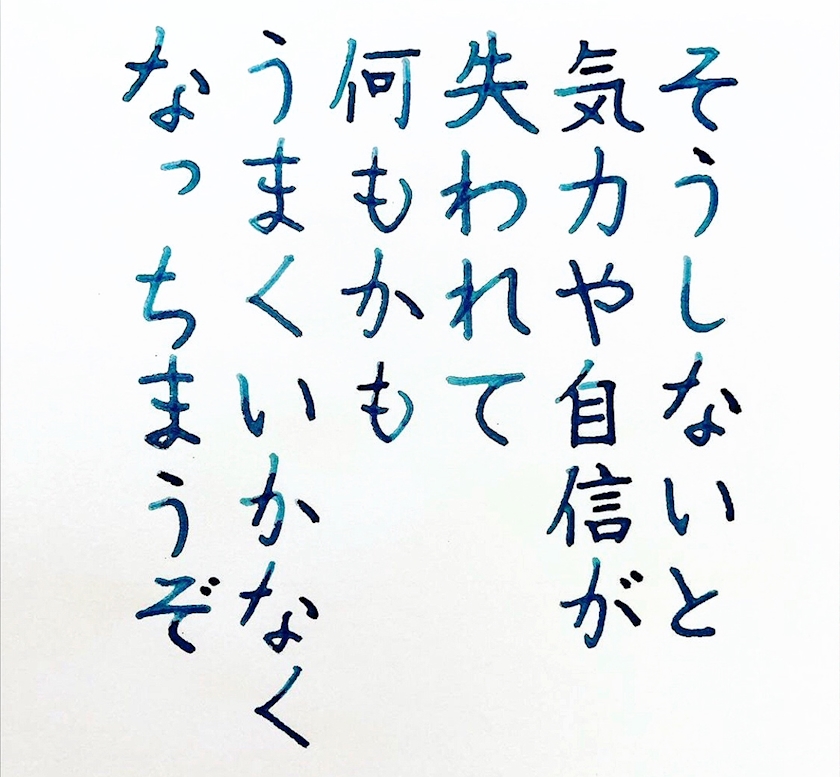 そうしないと
気力や自信が
失われて
何もかも
うまくいかなく
なっちまうぞ